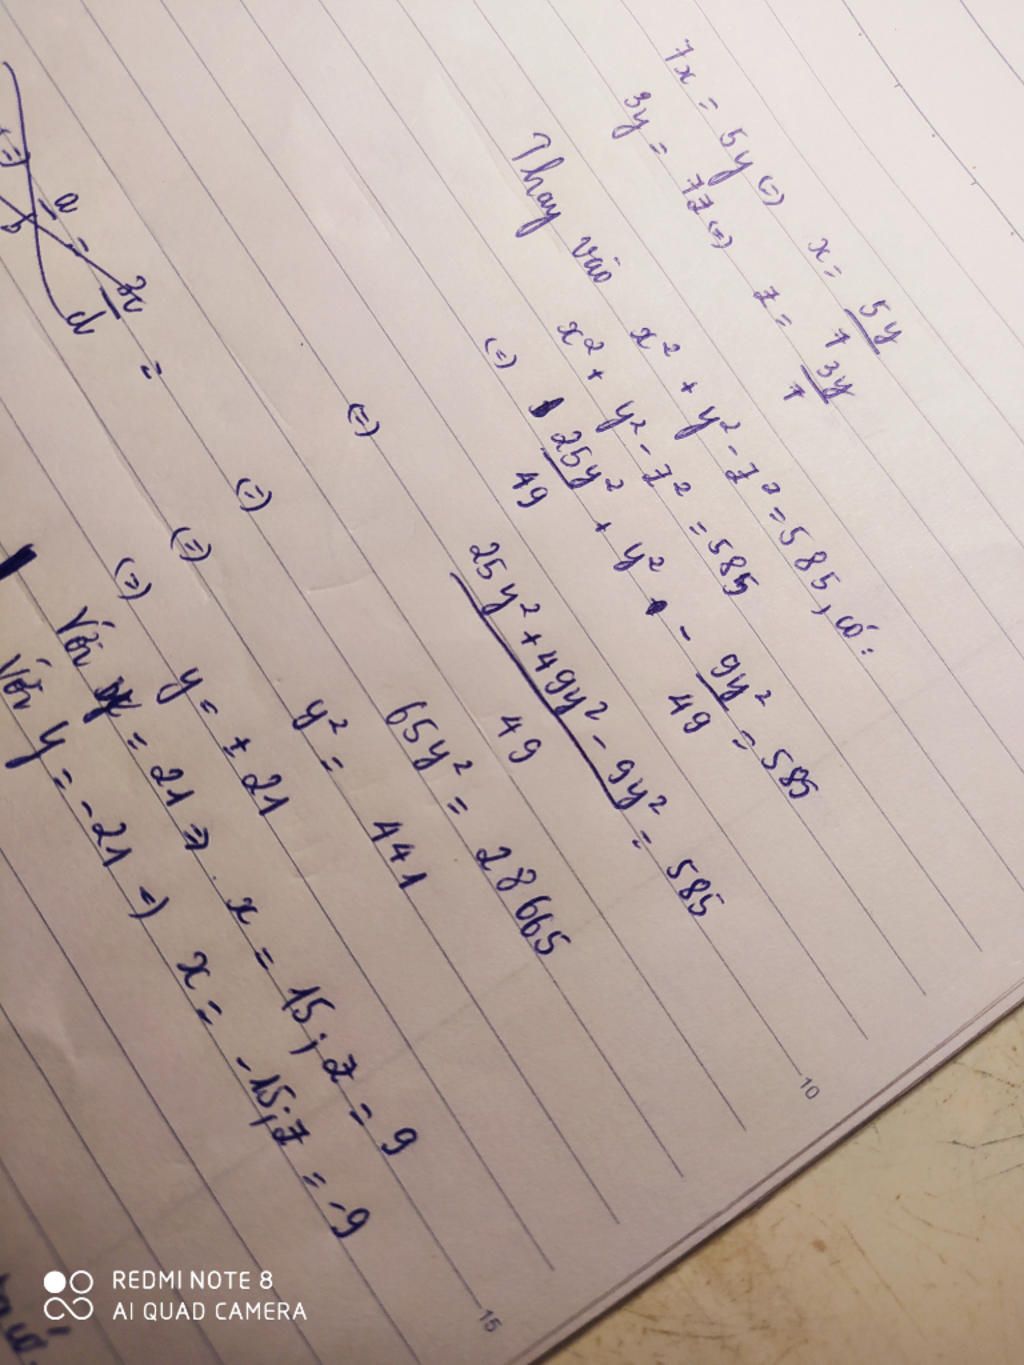 7x = 5y (=) x = 5y/7
3y = 7z (=) z = 3y/7
Thay vào x² + y² - z² = 585, có:
x² + y² - z² = 585
(=) 25y²/49 + y² - 9y²/49 = 585
(=) 25y² + 49y² - 9y²/49 = 585
(=) 65y² = 28665
(=) y² = 441
(=) y = ± 21
Với y = 21 => x = 15; z = 9
Với y = -21 => x = -15; z = -9
a =
b
d
=
10
15
REDMI NOTE 8
AI QUAD CAMERA